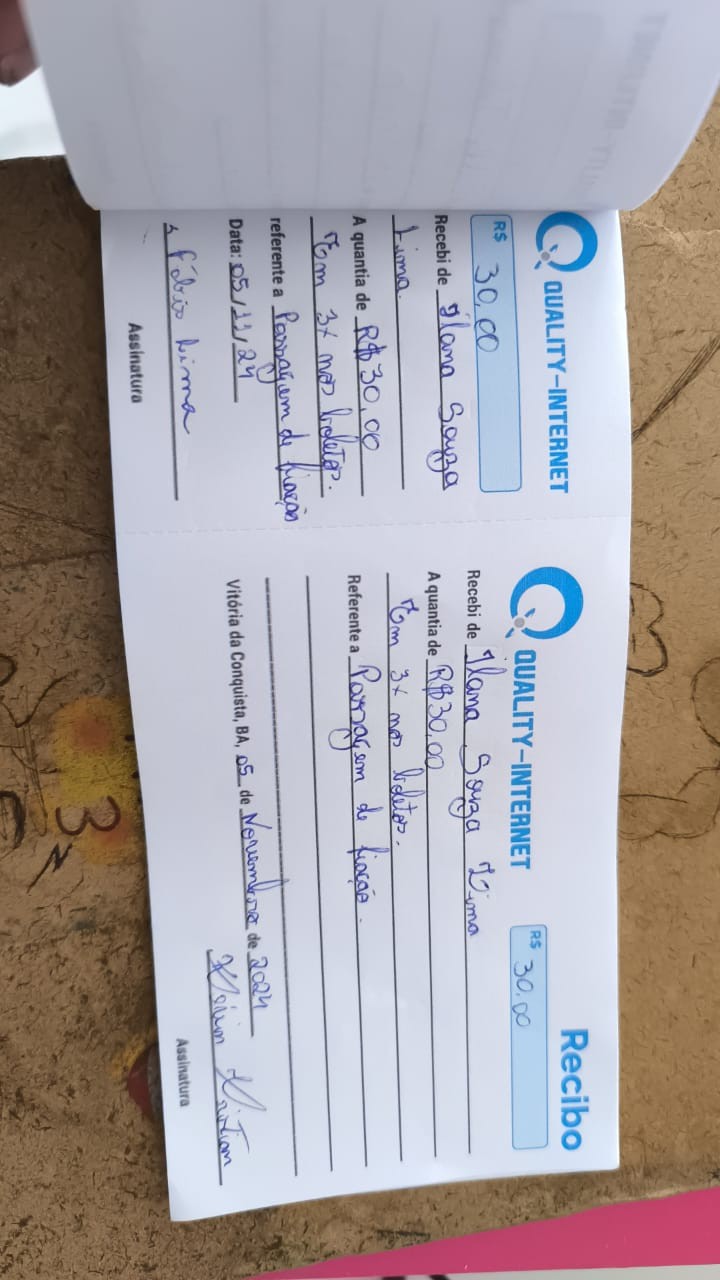 QUALITY-INTERNET
R$ 30,00
Recebi de Ilana Souza
Lima.
A quantia de R$30,00
Em 3x nos boletos.
referente a Passagem de fiação
Data: 05/11/24
Fábio Lima
Assinatura
QUALITY-INTERNET
Recibo
R$ 30,00
Recebi de Ilana Souza Lima
A quantia de R$30,00
Em 3x nos boletos.
Referente a Passagem de fiação.
Vitória da Conquista, BA, 05 de Novembro de 2024
Assinatura
3